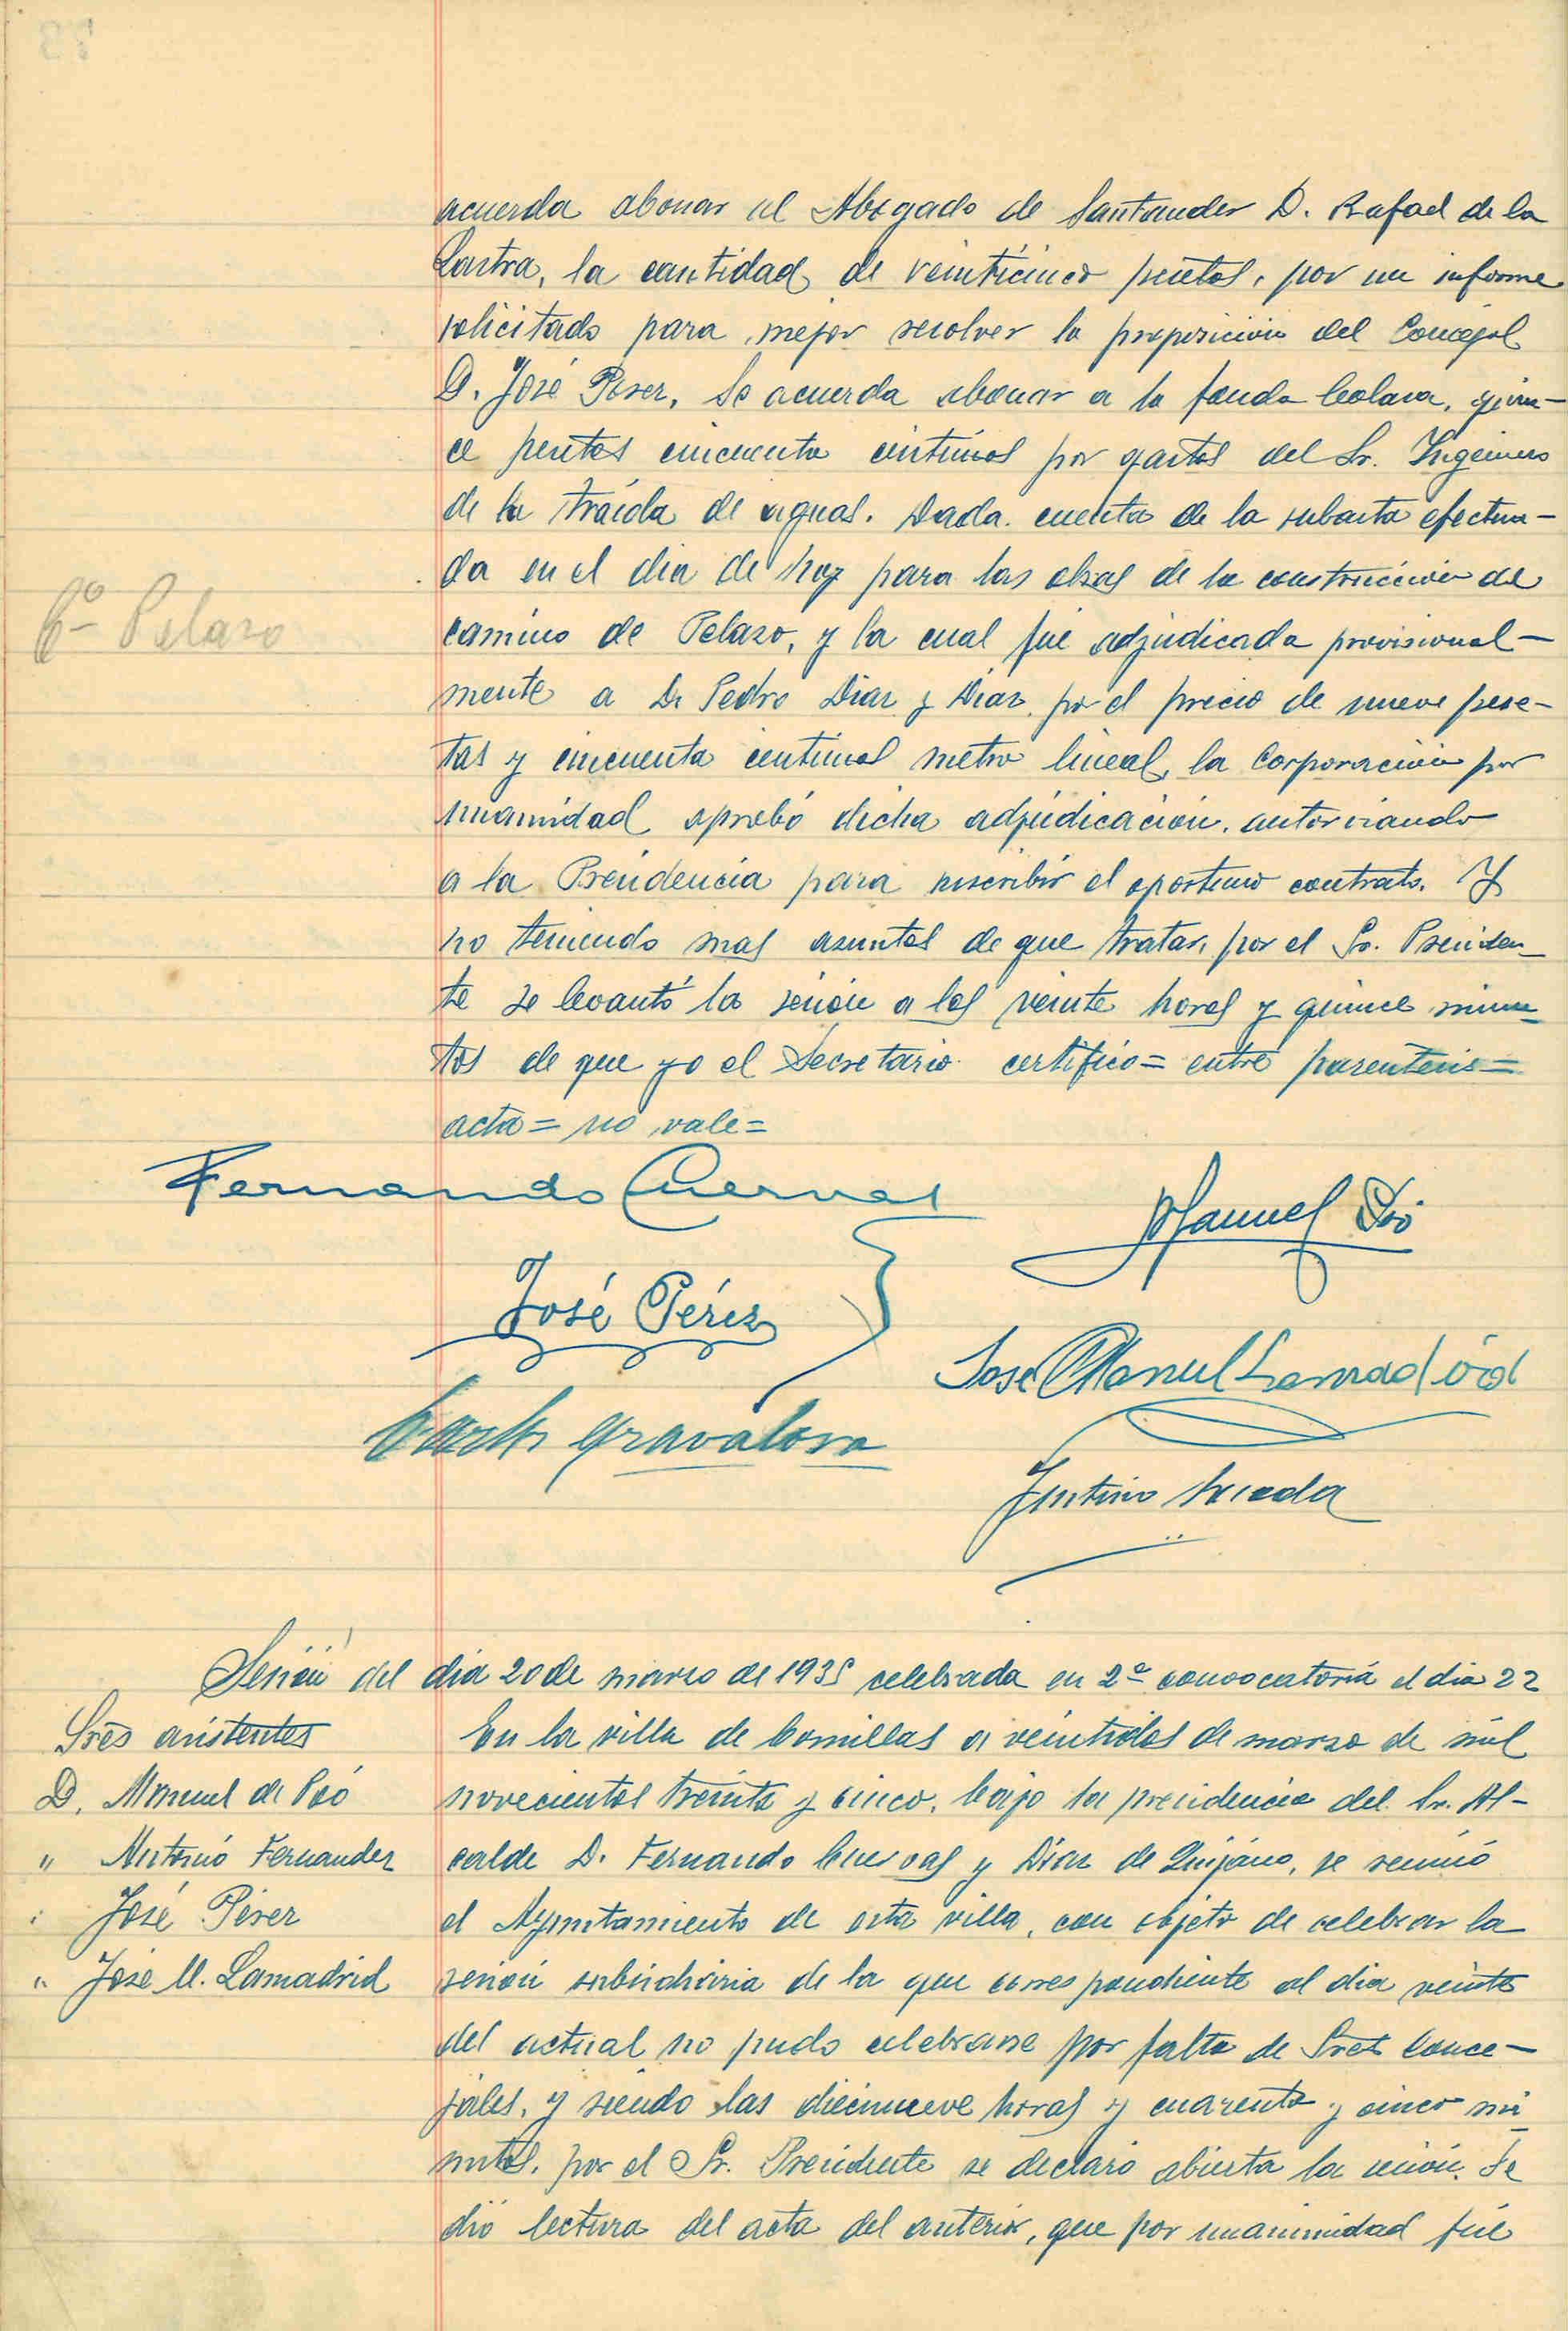 acuerda abonar al Abogado de Santander D. Rafael de la
Lastra, la cantidad de veinticinco pesetas, por un informe
solicitado para mejor resolver la proposición del Concejal
D. José Pérez. Se acuerda abonar a la fonda Colasa, quin-
ce pesetas cincuenta centimos por gastos del Sr. Ingeniero
de la traida de aguas. Dada cuenta de la subasta efectua-
da en el dia de hoy para las obras de la construcción del
Cº Pelazo
camino de Pelazo, y la cual fué adjudicada provisional-
mente a D. Pedro Diaz y Diaz, por el precio de nueve pese-
tas y cincuenta centimos metro lineal, la Corporación por
unanimidad aprobó dicha adjudicación, autorizando
a la Presidencia para suscribir el oportuno contrato. Y
no teniendo mas asuntos de que tratar, por el Sr. Presiden-
te se levantó la sesión a las veinte horas y quince minu-
tos de que yo el Secretario certifico= entre parentesis=
acta= no vale=
Fernando Cuevas
Manuel Poó
José Pérez
Jose Manuel Lamadrid
Carlos Gravalosa
Justino
Sesión del dia 20 de marzo de 1935 celebrada en 2ª convocatoria el dia 22
Sres asistentes
D. Manuel de Poó
" Antonio Fernandez
" José Pérez
" José M. Lamadrid
En la villa de Comillas a veintidos de marzo de mil
novecientos treinta y cinco, bajo la presidencia del Sr. Al-
calde D. Fernando Cuevas y Diaz de Quijano, se reunió
el Ayuntamiento de esta villa, con objeto de celebrar la
sesión subsidiaria de la que correspondiente al dia veinte
del actual no pudo celebrarse por falta de Sres Conce-
jales, y siendo las diecinueve horas y cuarenta y cinco mi-
nutos, por el Sr. Presidente se declaró abierta la sesión. Se
dió lectura del acta del anterior, que por unanimidad fué